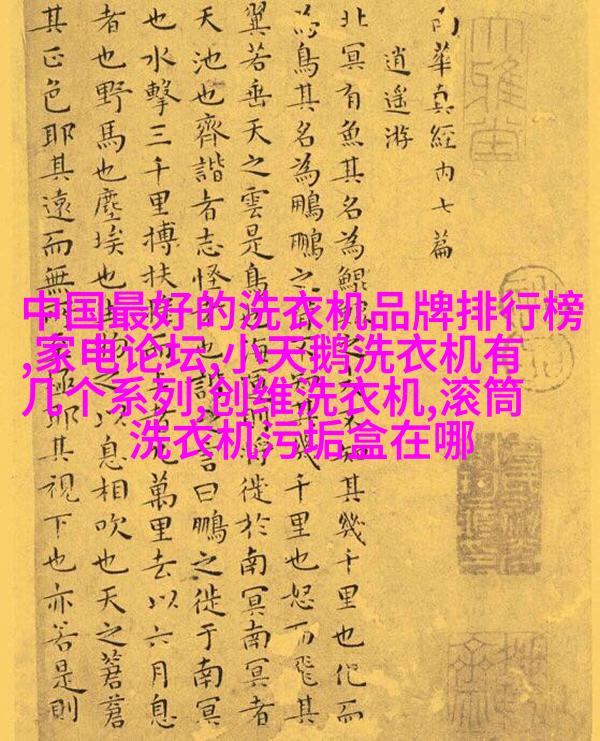 南華真經內七篇
逍遙游
北冥有魚其名為鯤鯤之大不知其幾千里也化而
為鳥其名為鵬鵬之背不知其幾千里也怒而飛其
翼若垂天之雲是鳥也海運則將徙於南冥南冥者
天池也齊諧者志怪者也諧之言曰鵬之徙于南冥
也水擊三千里摶扶搖而上者九萬里去以六月息
者也野馬也塵埃也生物之以息相吹也天之蒼蒼
其正色耶其遠而無所至極耶其視下也亦若是則
大雅堂
中国最好的洗衣机品牌排行榜
,家电论坛,小天鹅洗衣机有
几个系列,创维洗衣机,滚筒
洗衣机污垢盒在哪